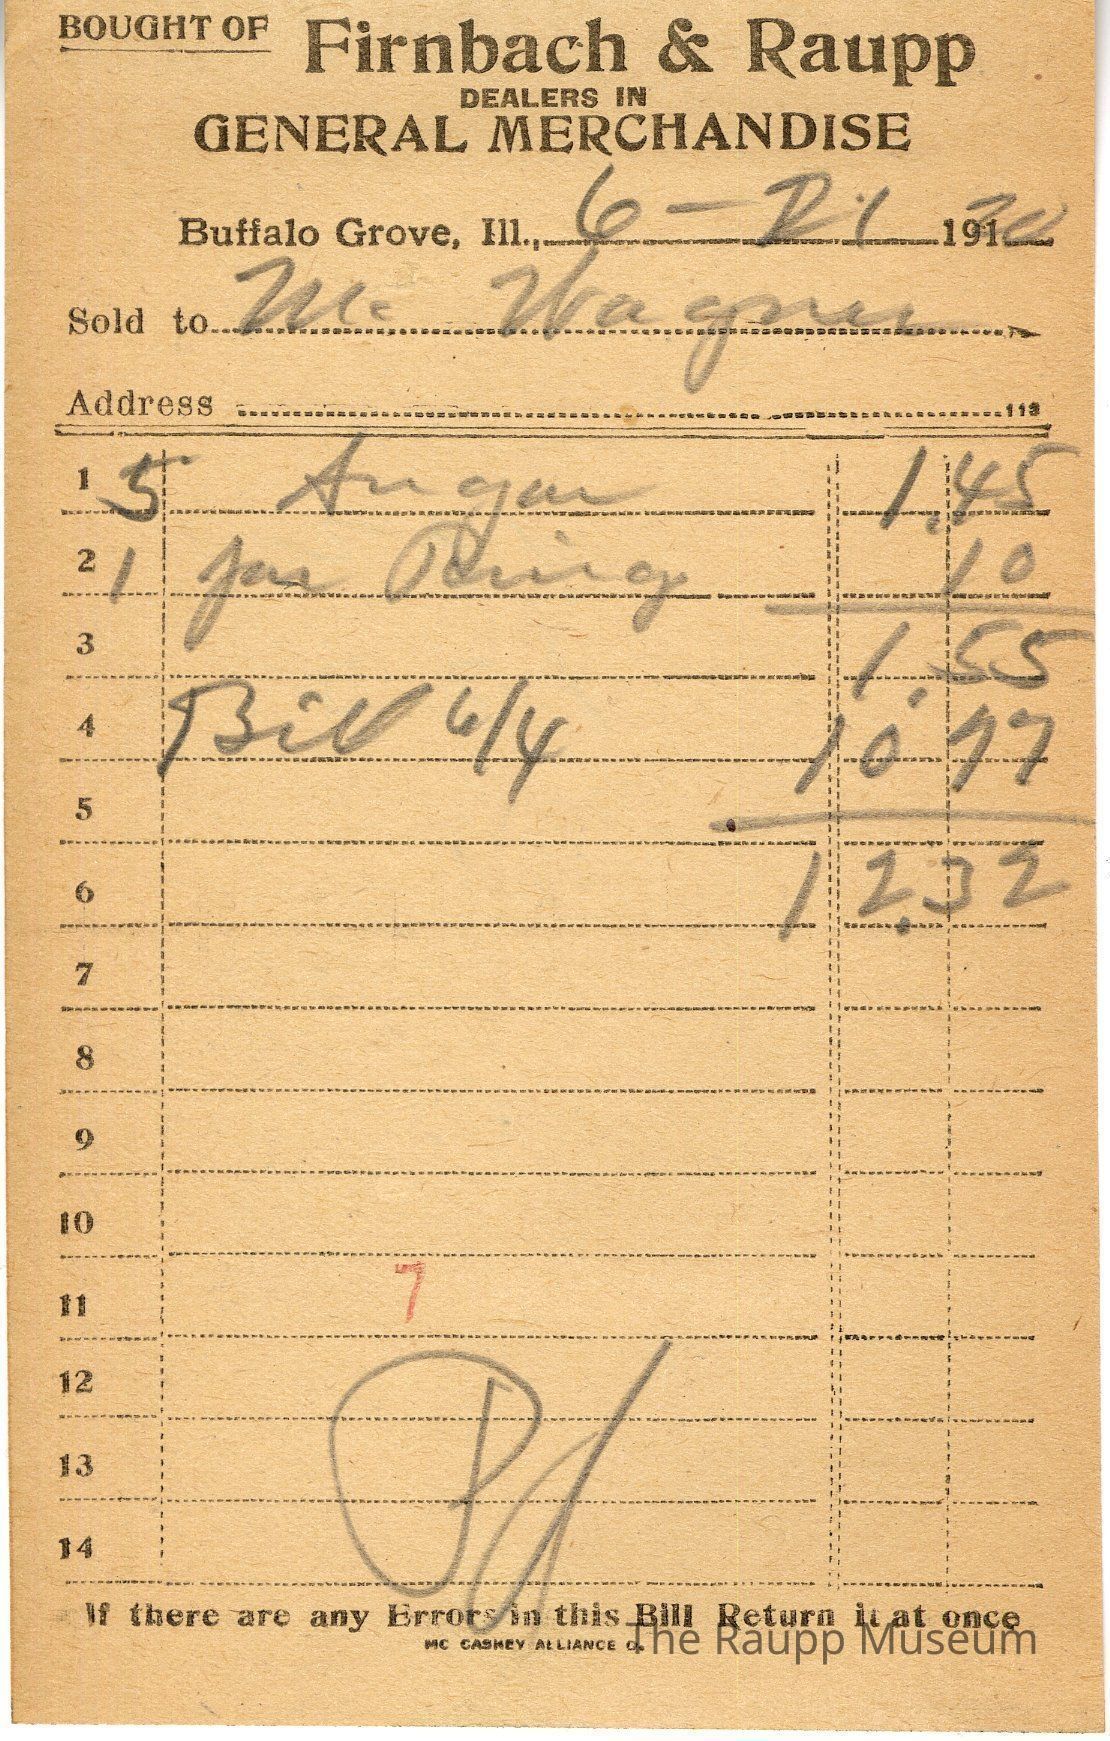 BOUGHT OF Firnbach & Raupp
DEALERS IN
GENERAL MERCHANDISE
Buffalo Grove, Ill., 6-21 1920
Sold to Wagner
Address 113
1 5 Sugar 1.45
2 1 Jar Ring 10
3 1.55
4 Bill 6/4 10 77
5
6 12.32
7
8
9
10
11 7
12
13
14
If there are any Errors in this Bill Return it at once
MC CASKEY ALLIANCE O.
The Raupp Museum